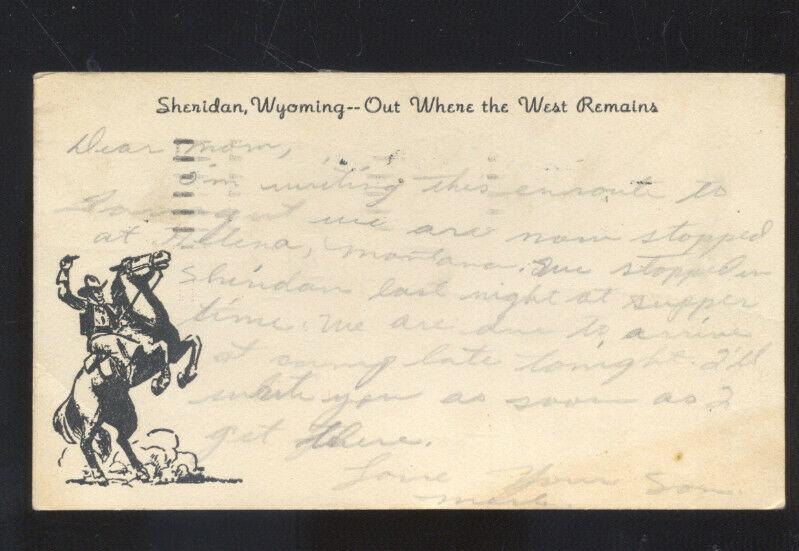 Sheridan, Wyoming--Out Where the West Remains
Dear Mom,
I'm writing this enroute to
Farragut we are now stopped
at Helena, Montana. We stopped in
Sheridan last night at supper
time. We are due to arrive
at camp late tonight. I'll
write you as soon as I
get there.
Love Your Son